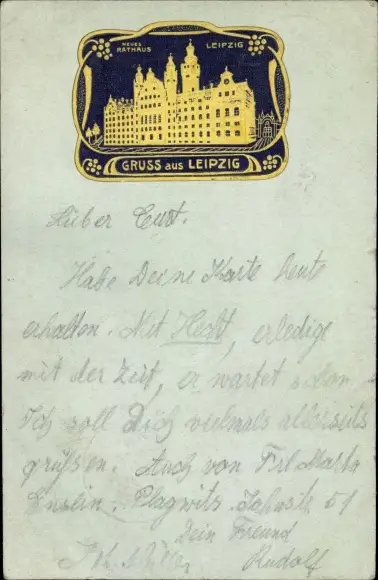 NEUES RATHAUS LEIPZIG
GRUSS aus LEIPZIG
Lieber Curt.
Habe Deine Karte heute
erhalten. Mit Hecht, erledige
mit der Zeit, er wartet schon
Ich soll Dich vielmals allerseits
grüßen. Auch von Frl. Martha
Plagwitz. Jahnstr. 51
Dein Freund
Rudolf